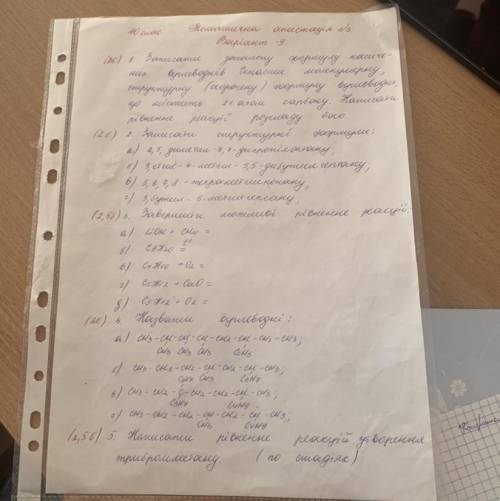 10 клас Тематична атестація №3
Варіант 9.
(2б) 1. Записати загальну формулу насиче-
них вуглеводнів. Скласти молекулярну,
структурну (скорочену) формулу вуглеводня,
що містить 21 атом карбону. Написати
рівняння реакції розкладу його
(2б) 2. Записати структурні формули:
а) 2,5, диметил - 4,4 - дипропілоктану;
б) 3, етил - 4 - метил - 3,5 - дибутилгептану;
в) - тетраметилнонану;
г) 3, бутил - 5 - метилгексану;
3. Завершити можливі рівняння реакцій:
а) + CH4 =
б) =
в) + O2 =
г) C5H12 + CaO =
д) C5H12 + O2 =
(2б) 4. Назвати вуглеводні:
а) CH3 - CH - CH - CH - CH2 - CH - CH2 - CH3;
CH3 CH3 CH3
б) CH3 - CH2 - CH2 - CH - CH - CH - CH3;
CH3
в) CH3 - CH2 - C - CH2 - CH2 - CH - CH3;
г) CH3 - CH2 - CH2 - CH - CH2 - CH - CH3;
CH3
(2,5б) 5. Написати рівняння реакцій утворення
трибромметану. (по стадіях)